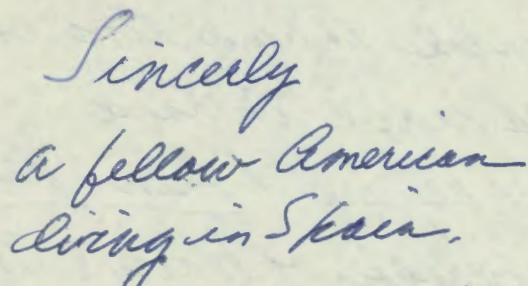 Sincerly
a fellow American
living in Spain.